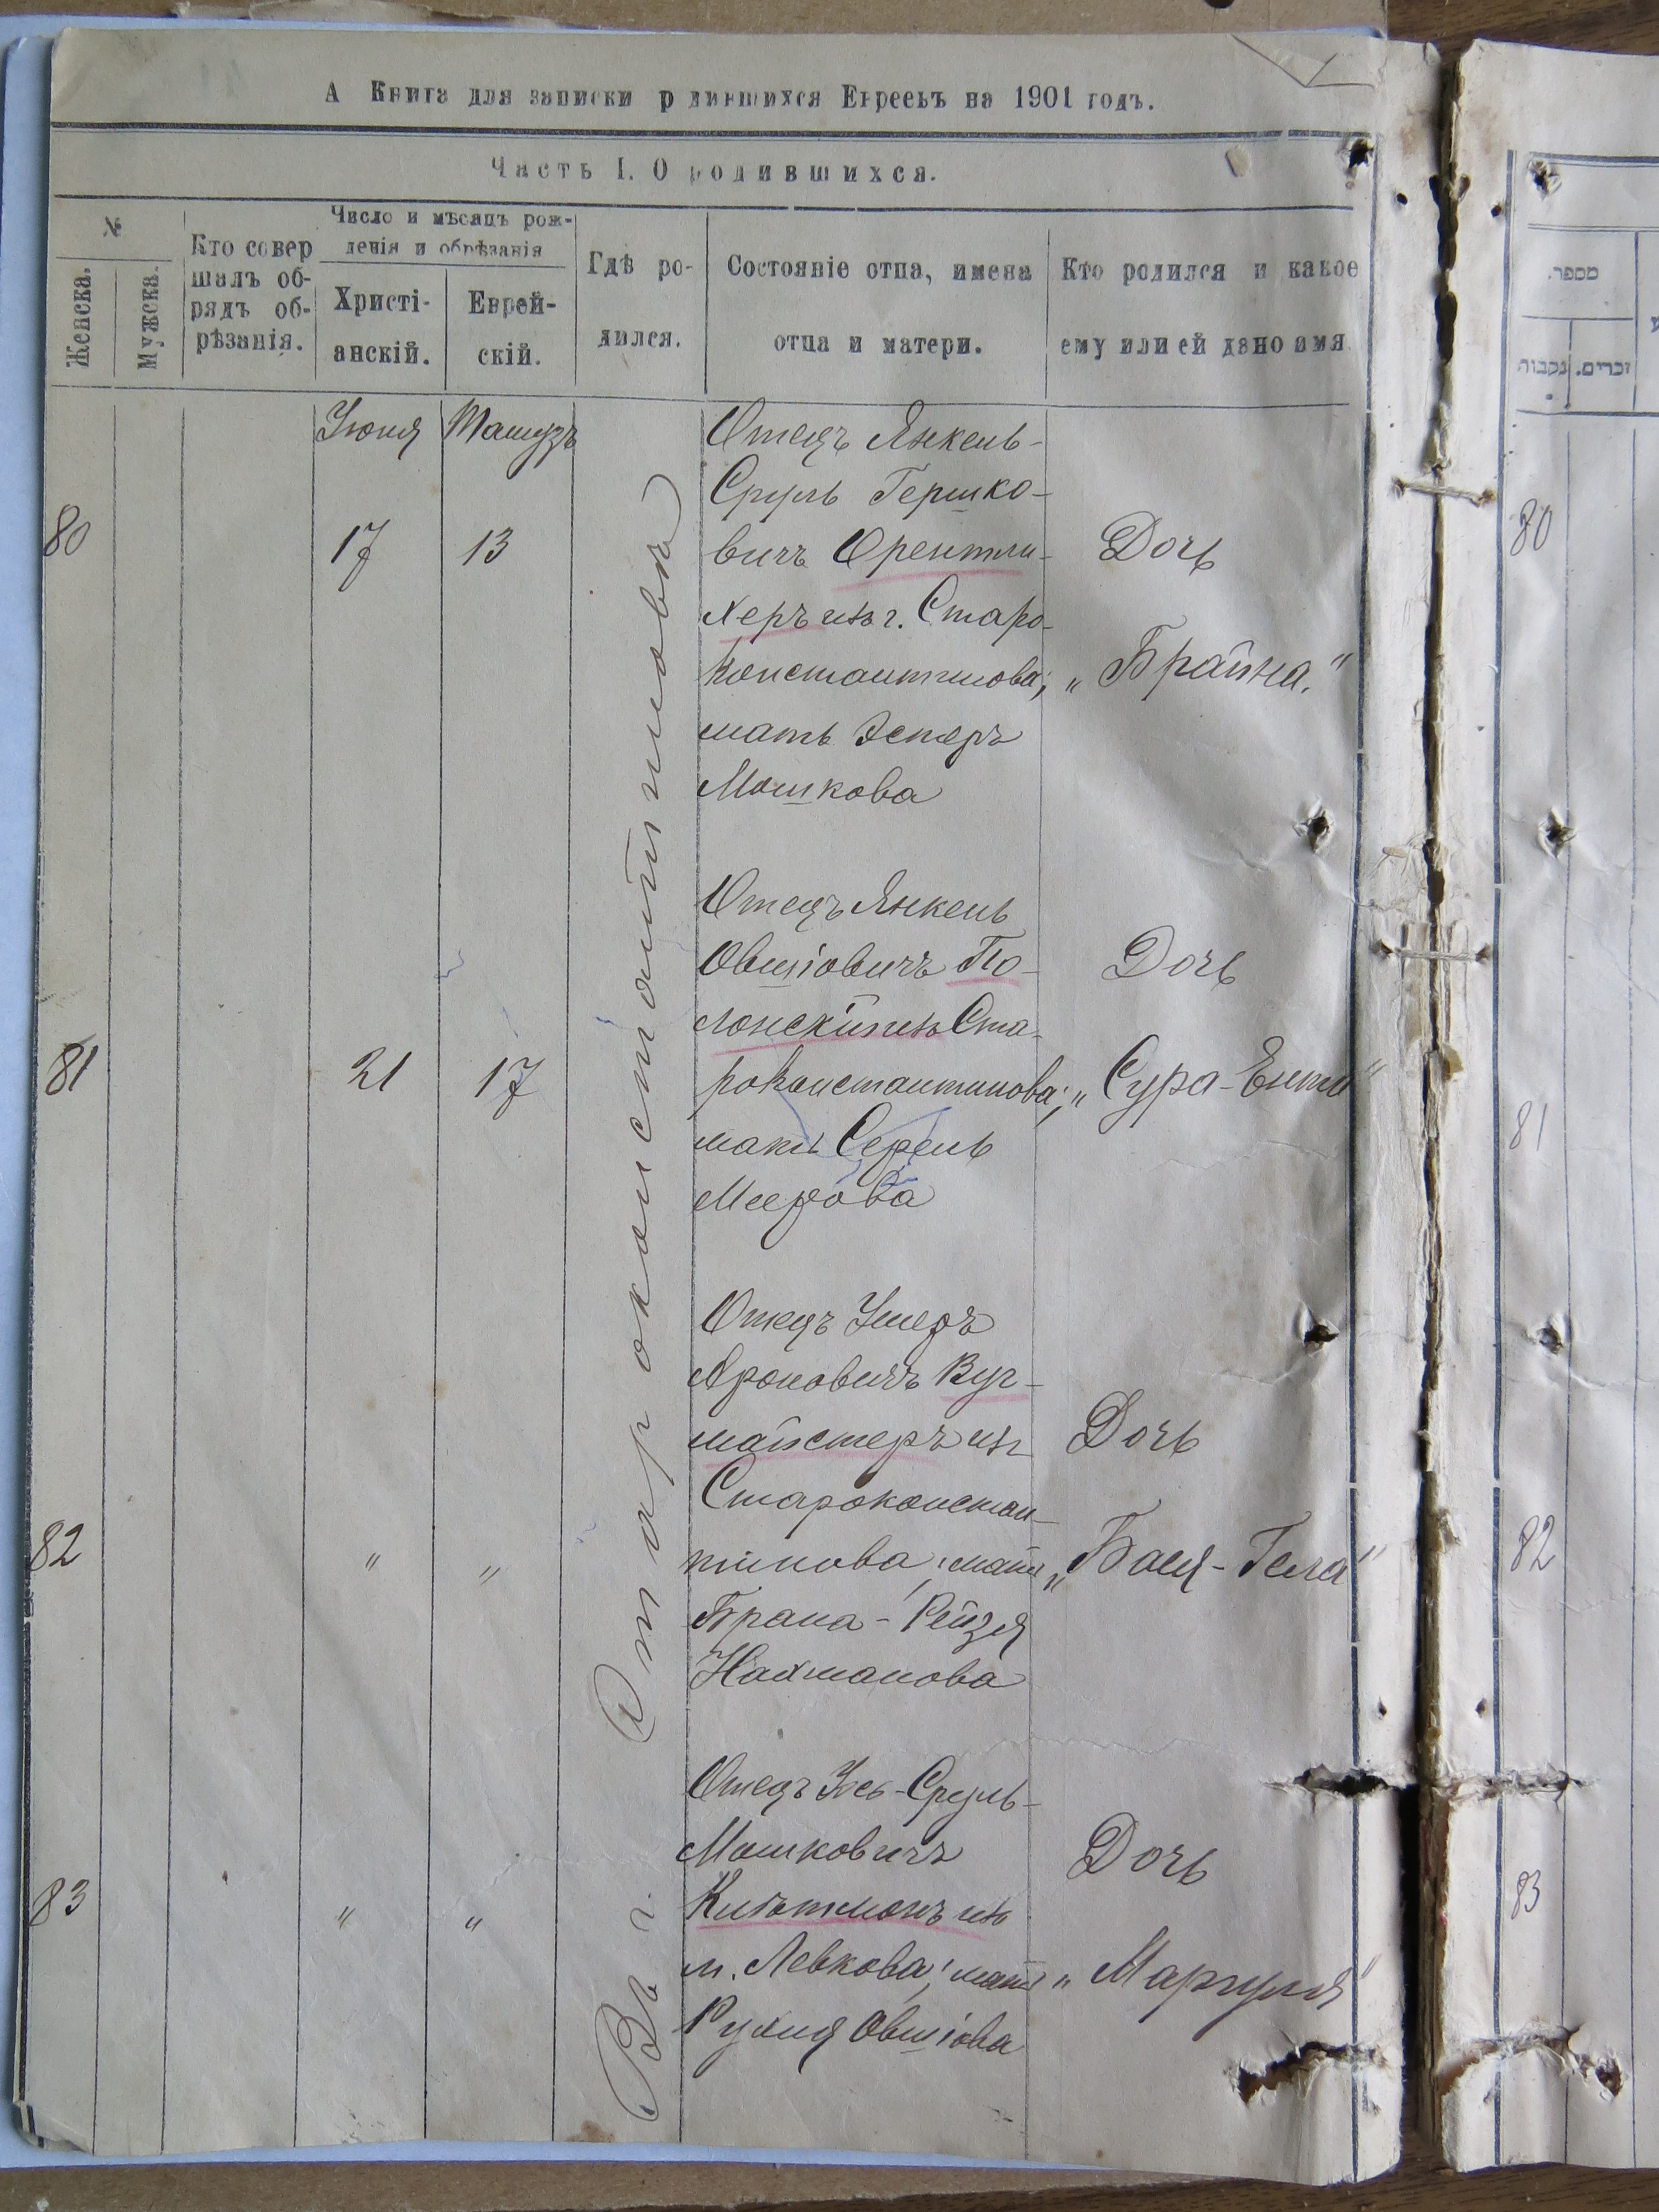 А Книга для записки р дившихся Евреевъ на 1901 годъ.
Часть I. О родившихся.
№
Женска.
Мужска.
Кто совер
шалъ об-
рядъ об-
рѣзанія.
Число и мѣсяцъ рож-
денія и обрѣзанія
Христі-
анскій.
Еврей-
скій.
Гдѣ ро-
дился.
Состояніе отца, имена
отца и матери.
Кто родился и какое
ему или ей дано имя
Іюня
Тамузъ
Въ г. Староконстантиновѣ
80
17
13
Отецъ Янкель-
Сруль Гершко-
вичъ Орентли-
херъ изъ г. Старо-
константинова;
мать Эстеръ
Мошкова
Дочь
„Брайна."
81
21
17
Отецъ Янкель
Овшіовичъ По-
лонскій изъ Ста-
роконстантинова;
мать Серель
Меерова
Дочь
„Сура-Ента"
82
"
"
Отецъ Ушеръ
Ароновичъ Вуг-
майстеръ изъ
Староконстан-
тинова; мать
Брана-Рейзя
Нахманова
Дочь
„Бася-Гела"
83
"
"
Отецъ Іось-Сруль-
Мошковичъ
изъ
м. Левкова; мать
Рухля Овшіова
Дочь
„Маргуля"
מספר.
נקבות
זכרים.
80
81
82
83